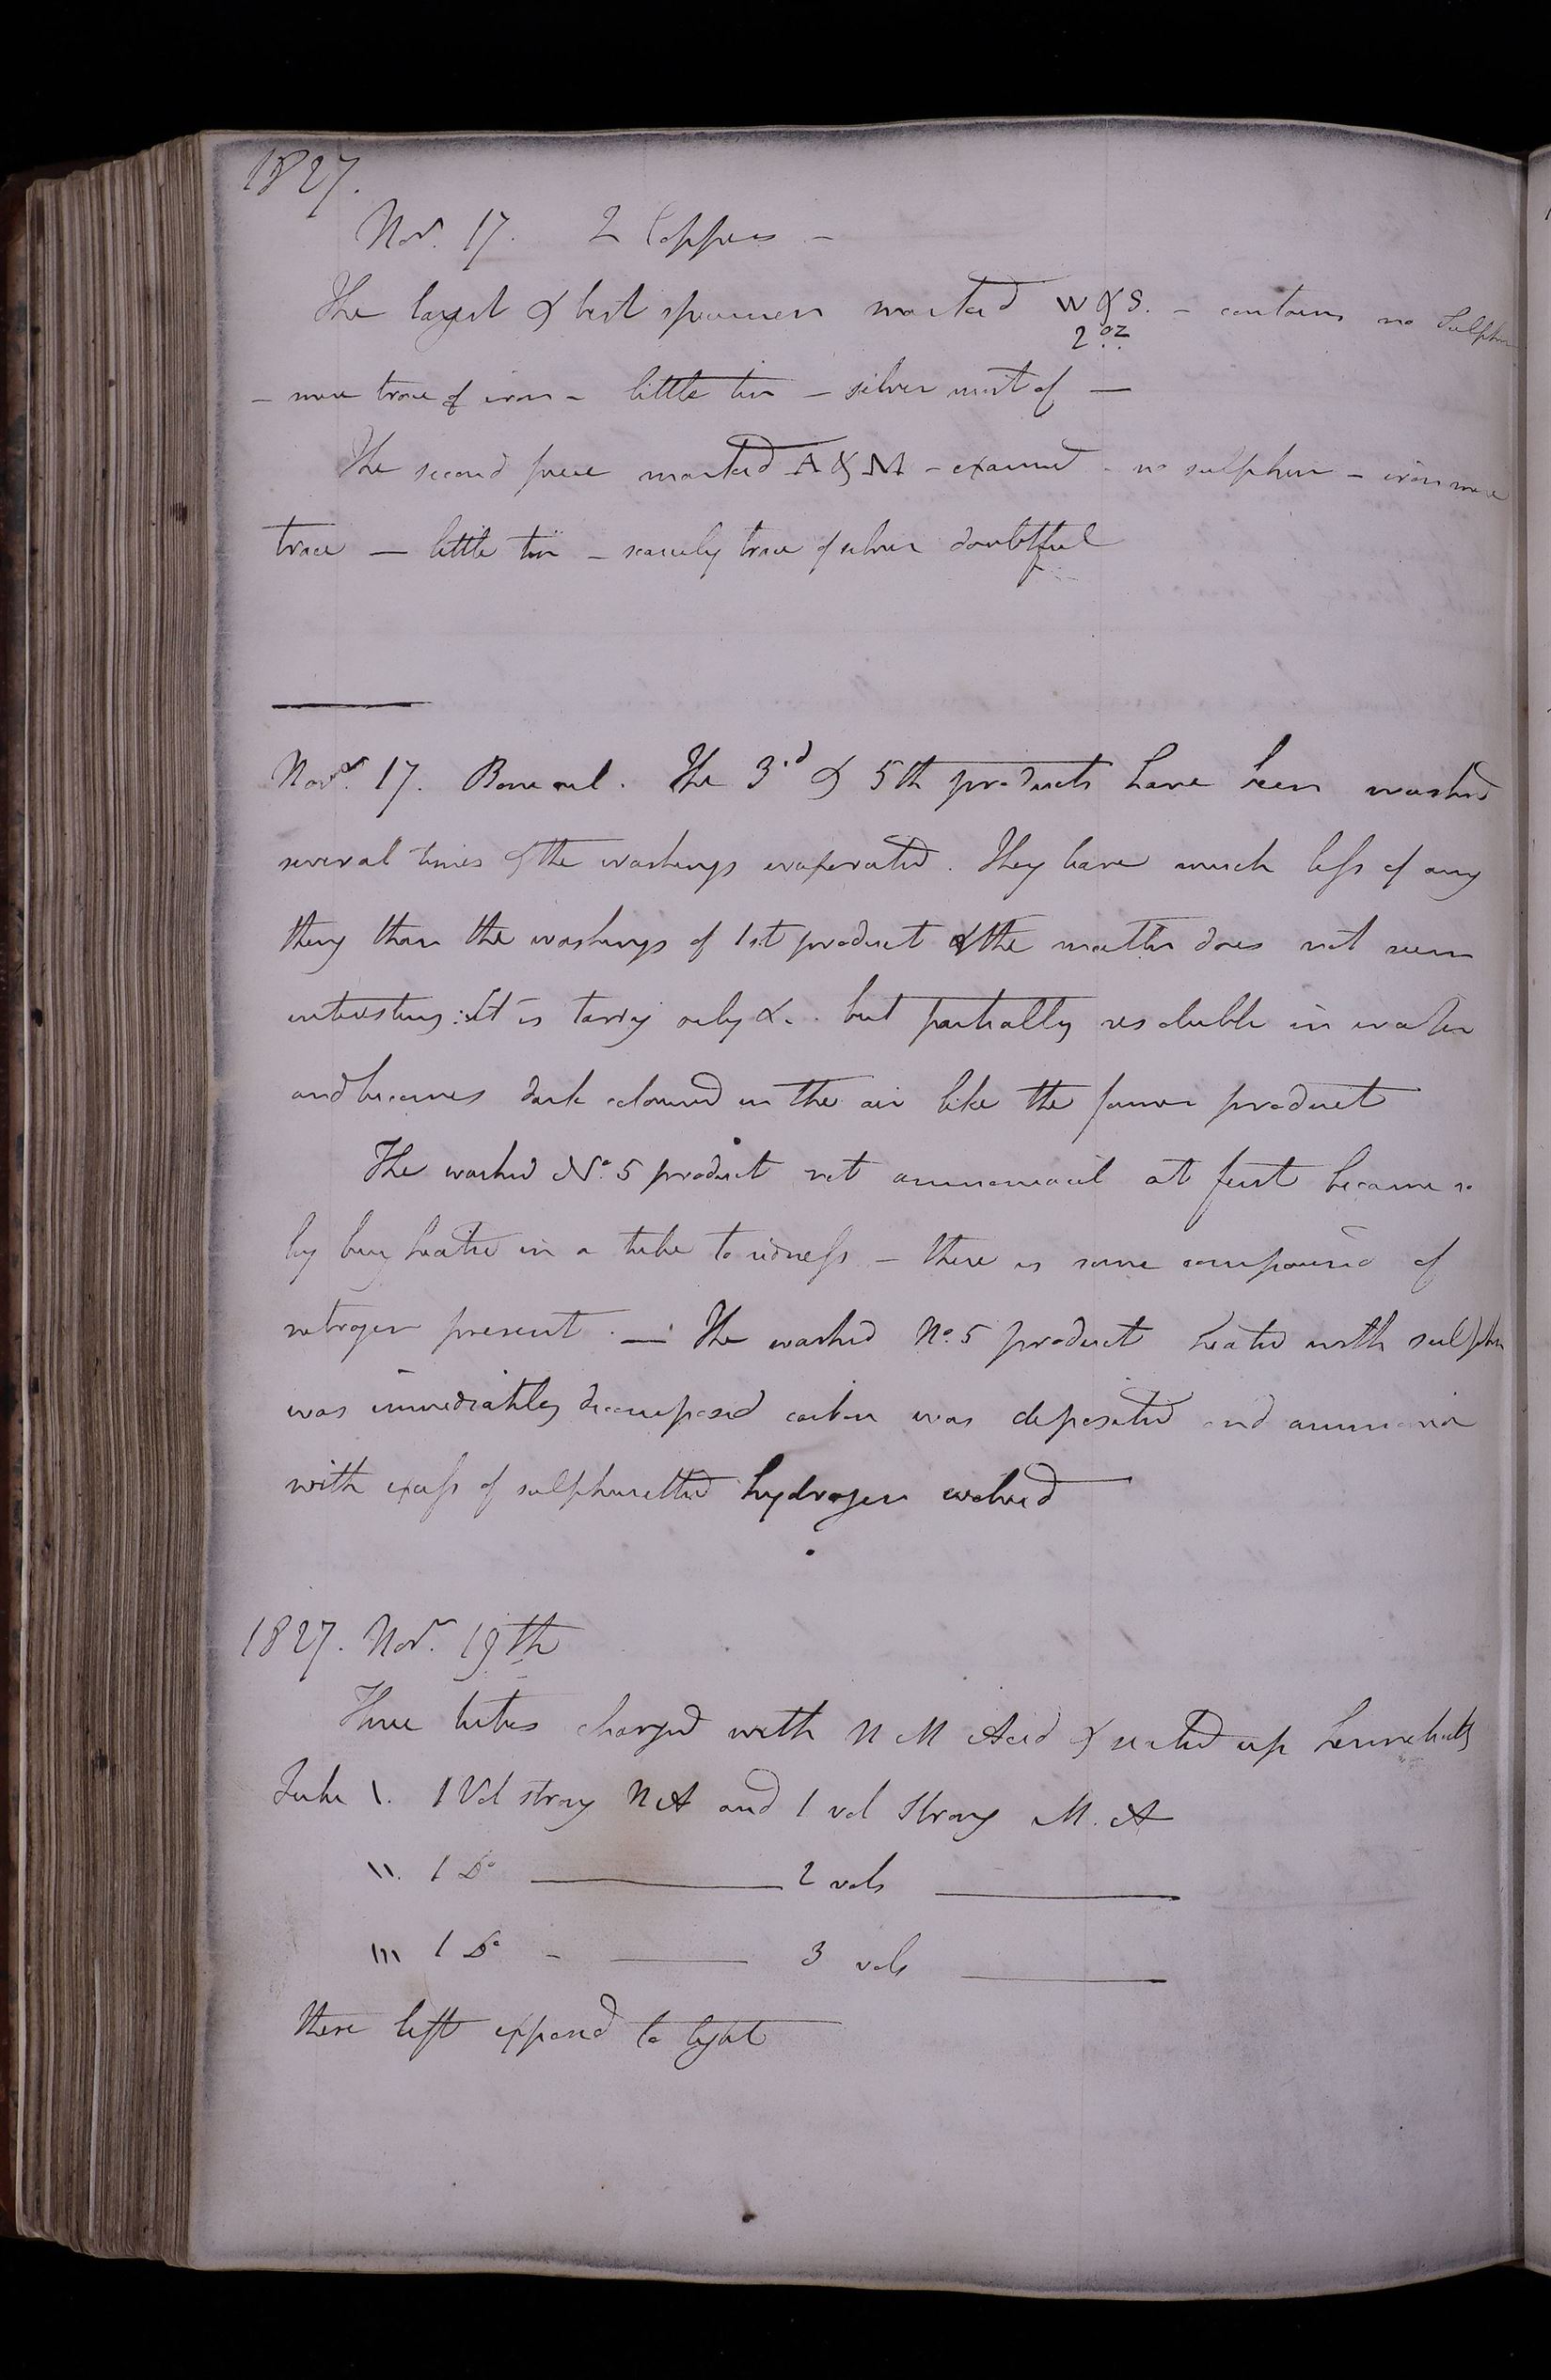 1827.
Novr. 17. 2 Coppers -
The largest & best specimen marked W & S. - contains no Sulphur
2 oz
- mere trace of iron - little tin - silver most of —
The second piece marked A & M - examined - no sulphur - iron mere
trace — little tin - scarcely trace of silver doubtful
Novr. 17. Bone oil. The 3rd & 5th products have been washed
several times & the washings evaporated. They leave much less of any
thing than the washings of 1st product & the matter does not seem
interesting: It is tarry oily &c. but partially resoluble in water
and becomes dark coloured in the air like the former product
The washed No. 5 product not ammoniacal at first became so
by being heated in a tube to redness - there is some compound of
nitrogen present. — The washed No. 5 product heated with sulphur
was immediately decomposed carbon was deposited and ammonia
with excess of sulphuretted hydrogen evolved
1827. Novr. 19th
Three tubes charged with N M Acid & sealed up hermetically
Tube \. 1 Vol strong N A and 1 vol Strong M. A
\\. 1 Do ——— 2 vols ———
\\\ 1 Do - ——— 3 vols ———
These left exposed to light